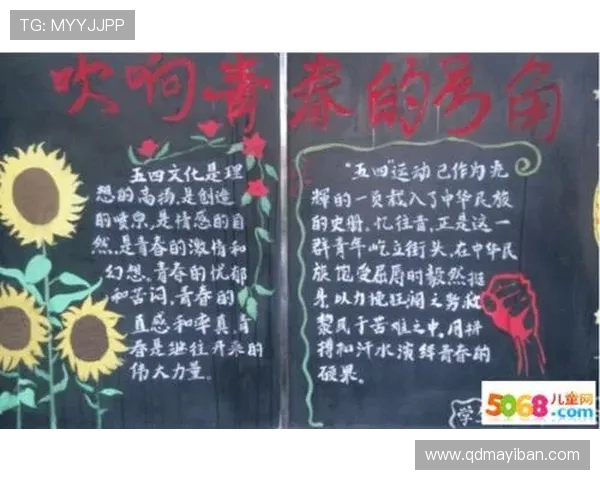 TG: MYYJJPP
吹响青春的号角
五四文化是理
想的高扬,是创造
的喷泉,是情感的自
然,是青春的激情和
幻想。青春的忧郁
和苦闷,青春的
直感和率真,青
春是继往开来的
伟大力量。
"五四"运动已作为光
辉的一页载入了中华民族
的史册。忆往昔,正是这一
群青年屹立街头,在中华民
族饱受屈辱时毅然挺
身,以力挽狂澜之势救
黎民于苦难之中。用拼
搏和汗水演绎青春的
硕果。
学
5068儿童网
.com
www.qdmayiban.com